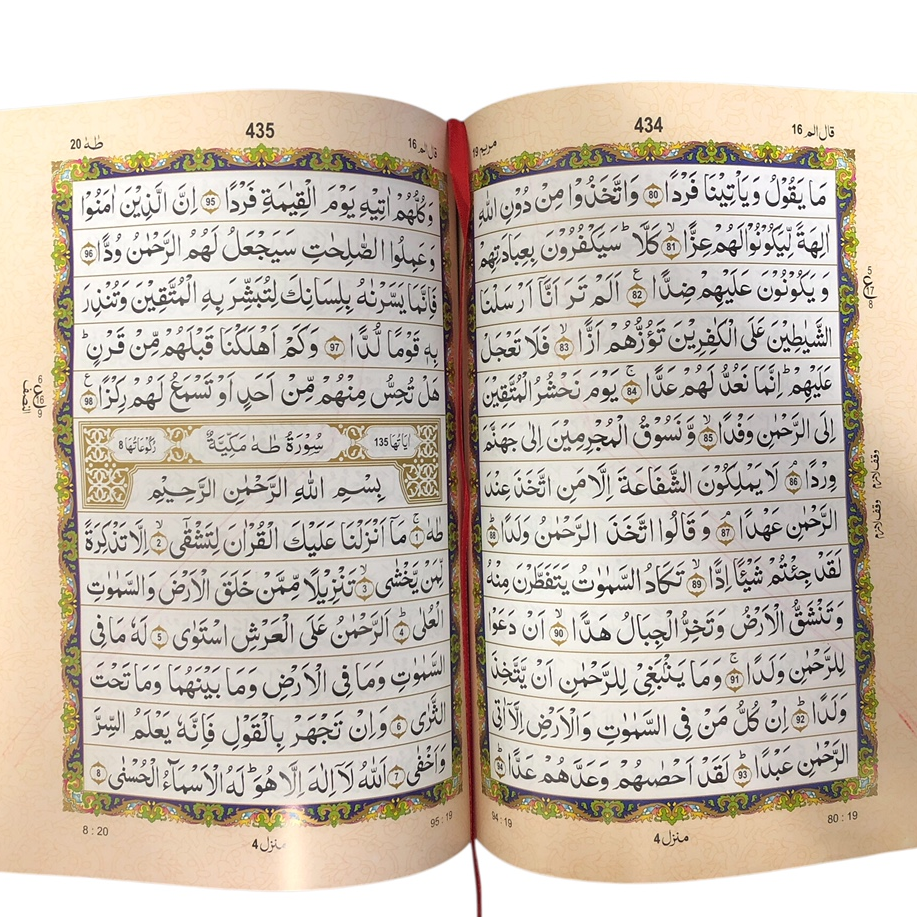 قال الم 16
434
مريم 19
مَا يَقُوْلُ وَيَاْتِيْنَا فَرْدًا 80 وَاتَّخَذُوْا مِنْ دُوْنِ اللّٰهِ
اٰلِهَةً لِّيَكُوْنُوْا لَهُمْ عِزًّا 81 كَلَّا ؕ سَيَكْفُرُوْنَ بِعِبَادَتِهِمْ
وَيَكُوْنُوْنَ عَلَيْهِمْ ضِدًّا 82 اَلَمْ تَرَ اَنَّآ اَرْسَلْنَا
الشَّيٰطِيْنَ عَلَى الْكٰفِرِيْنَ تَؤُزُّهُمْ اَزًّا 83 فَلَا تَعْجَلْ
عَلَيْهِمْ ؕ اِنَّمَا نَعُدُّ لَهُمْ عَدًّا 84 يَوْمَ نَحْشُرُ الْمُتَّقِيْنَ
اِلَى الرَّحْمٰنِ وَفْدًا 85 وَّنَسُوْقُ الْمُجْرِمِيْنَ اِلٰى جَهَنَّمَ
وِرْدًا 86 لَا يَمْلِكُوْنَ الشَّفَاعَةَ اِلَّا مَنِ اتَّخَذَ عِنْدَ
الرَّحْمٰنِ عَهْدًا 87 وَقَالُوا اتَّخَذَ الرَّحْمٰنُ وَلَدًا 88
لَقَدْ جِئْتُمْ شَيْـًٔا اِدًّا 89 تَكَادُ السَّمٰوٰتُ يَتَفَطَّرْنَ مِنْهُ
وَتَنْشَقُّ الْاَرْضُ وَتَخِرُّ الْجِبَالُ هَدًّا 90 اَنْ دَعَوْا
لِلرَّحْمٰنِ وَلَدًا 91 وَمَا يَنْۢبَغِيْ لِلرَّحْمٰنِ اَنْ يَّتَّخِذَ
وَلَدًا 92 اِنْ كُلُّ مَنْ فِي السَّمٰوٰتِ وَالْاَرْضِ اِلَّآ اٰتِي
الرَّحْمٰنِ عَبْدًا 93 لَقَدْ اَحْصٰىهُمْ وَعَدَّهُمْ عَدًّا 94
وقف لازم
وقف لازم
80 : 19
94 : 19
منزل 4
قال الم 16
435
طٰهٰ 20
وَكُلُّهُمْ اٰتِيْهِ يَوْمَ الْقِيٰمَةِ فَرْدًا 95 اِنَّ الَّذِيْنَ اٰمَنُوْا
وَعَمِلُوا الصّٰلِحٰتِ سَيَجْعَلُ لَهُمُ الرَّحْمٰنُ وُدًّا 96
فَاِنَّمَا يَسَّرْنٰهُ بِلِسَانِكَ لِتُبَشِّرَ بِهِ الْمُتَّقِيْنَ وَتُنْذِرَ
بِهٖ قَوْمًا لُّدًّا 97 وَكَمْ اَهْلَكْنَا قَبْلَهُمْ مِّنْ قَرْنٍ ؕ
هَلْ تُحِسُّ مِنْهُمْ مِّنْ اَحَدٍ اَوْ تَسْمَعُ لَهُمْ رِكْزًا 98
اٰيَاتُهَا 135 سُوْرَةُ طٰهٰ مَكِّيَّةٌ رُكُوْعَاتُهَا 8
بِسْمِ اللّٰهِ الرَّحْمٰنِ الرَّحِيْمِ
طٰهٰ 1 مَآ اَنْزَلْنَا عَلَيْكَ الْقُرْاٰنَ لِتَشْقٰٓى 2 اِلَّا تَذْكِرَةً
لِّمَنْ يَّخْشٰى 3 تَنْزِيْلًا مِّمَّنْ خَلَقَ الْاَرْضَ وَالسَّمٰوٰتِ
الْعُلٰى 4 اَلرَّحْمٰنُ عَلَى الْعَرْشِ اسْتَوٰى 5 لَهٗ مَا فِي
السَّمٰوٰتِ وَمَا فِي الْاَرْضِ وَمَا بَيْنَهُمَا وَمَا تَحْتَ
الثَّرٰى 6 وَاِنْ تَجْهَرْ بِالْقَوْلِ فَاِنَّهٗ يَعْلَمُ السِّرَّ
وَاَخْفٰى 7 اَللّٰهُ لَآ اِلٰهَ اِلَّا هُوَ ؕ لَهُ الْاَسْمَآءُ الْحُسْنٰى 8
95 : 19
8 : 20
منزل 4